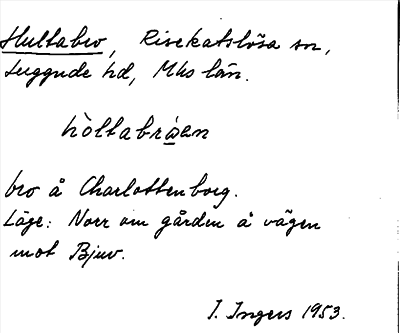 Hultabro, Risekatslösa sn,
Luggude hd, Mhs län.
hòltabrẁen
bro å Charlottenborg.
Läge: Norr om gården å vägen
mot Bjuv.
I. Ingers 1953.